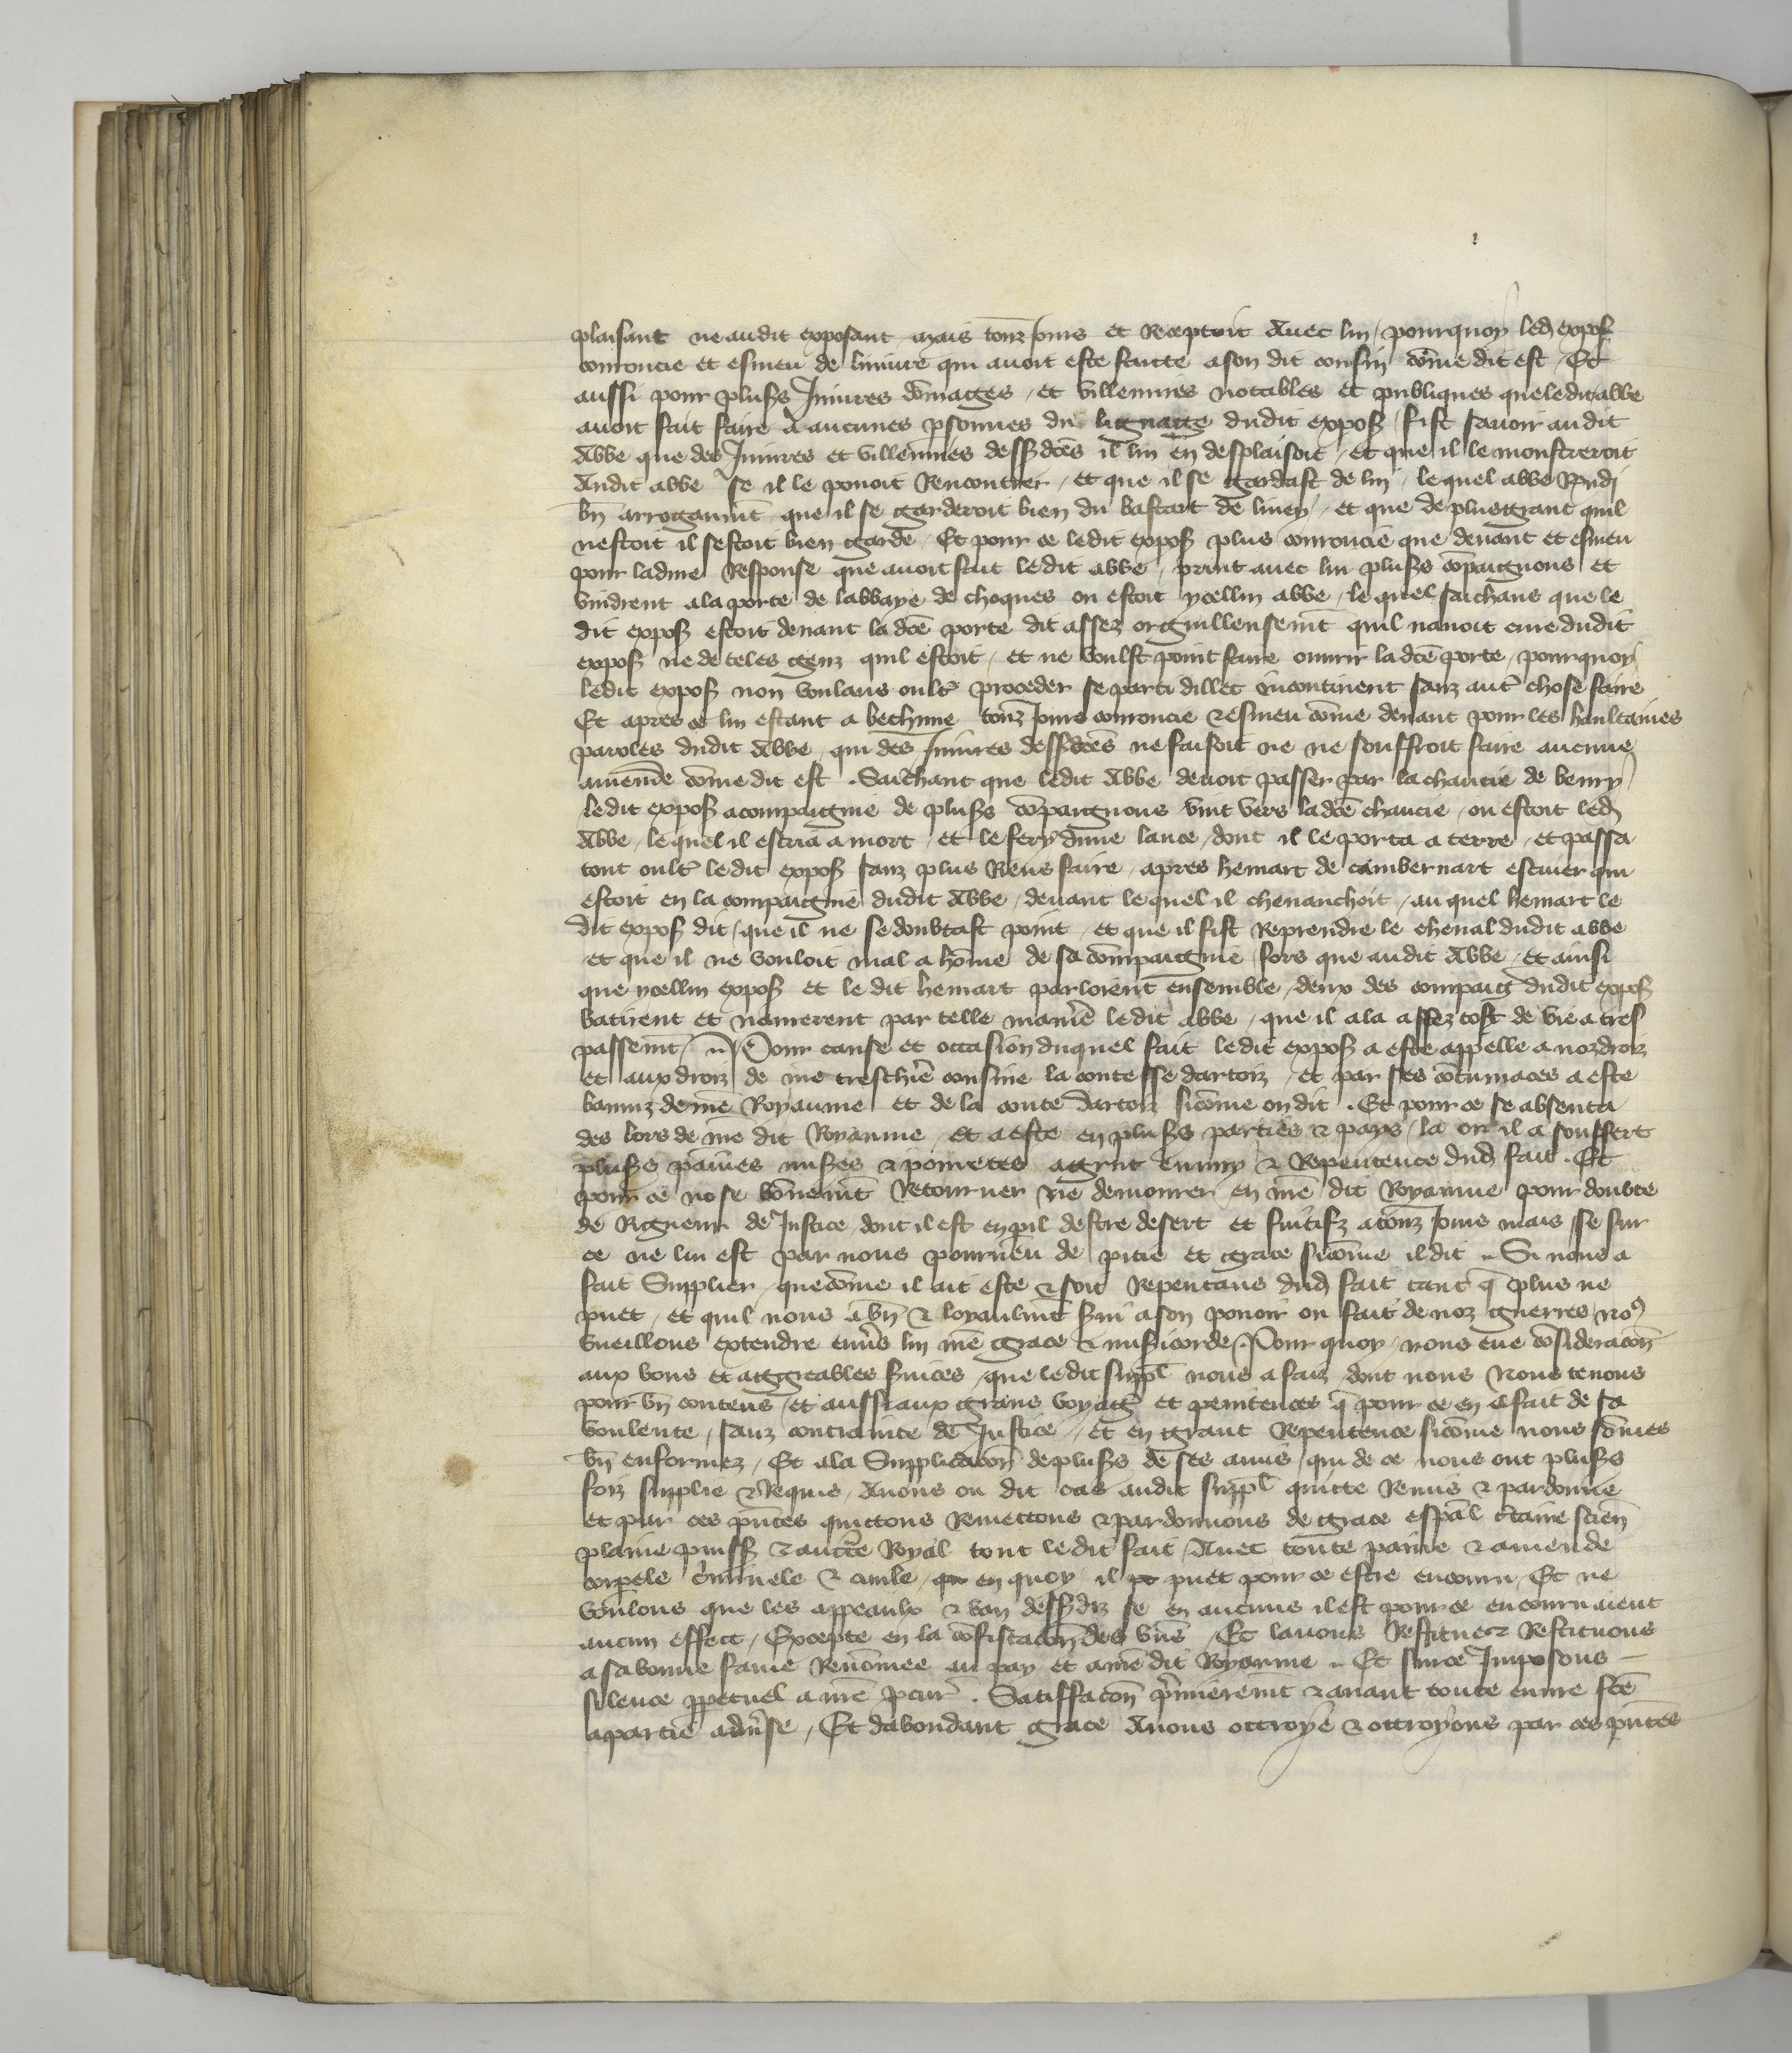 plaisant ne audit exposant mais touz jours et receptoit avec lui / pourquoy led expos
courroucie et esmeu de linjure qui avoit este faitte a son dit cousin come dit est / Et
aussi pour plus's Injures domages / et villennies notables et publiques que ledit abbe
avoit fait faire a aucunes psonnes du lignage dudit expos / fist savoir audit
Abbe que des Injures et villennies dessdces il lui en desplaisoit / et que il le monstreroit
Audit abbe se il le povoit Rencontrer / et que il se gardast de lui / lequel abbe Rndi
bn arroganmt que il se garderoit bien du bastart de liney / et que de plus grant quil
nestoit il sestoit bien garde / Et pour ce ledit expos plus courroucie que devant et esmeu
pour ladicte Response que avoit fait ledit abbe / print avec lui plus's compaignons et
vindrent a la porte de labbaye de choques ou estoit ycellui abbe / le quel saichans que le
dit expos estoit devant la dce porte dit assez orguilleusemt quil navoit cure dudit
expos ne de teles genz quil estoit / et ne voulst point faire ouvrir la dce porte / pourquoy
ledit expos non voulans oult' proceder se parti dillec incontinent sanz aut' chose faire
Et apres ce lui estant a bethune touz jours courroucie & esmeu come devant pour les haultaines
paroles dudit Abbe qui des Injures dessdces ne faisoit ne ne souffroit faire aucune
amende come dit est . Saichant que ledit Abbe devoit passer par la chaucie de beury
ledit expos acompaigne de plus's compaignons vint vers la dce chaucie / ou estoit led
Abbe / le quel il escria a mort / et le fery dune lance / dont il le porta a terre / et passa
tout oult' ledit expos sanz plus Riens faire / apres hemart de cambernart escuier qui
estoit en la compaignie dudit Abbe / devant le quel il chevauchoit / au quel hemart le
dit expos dit / que il ne se doubtast point / et que il fist Reprendre le cheval dudit abbe
et que il ne vouloit mal a home de sa compaignie fors que audit Abbe / et ainsi
que ycellui expos et le dit hemart parloient ensemble / deux des compaig dudit expos
batirent et navrerent par telle maniere ledit abbe / que il ala assez tost de vie a tres
passemt / Pour cause et occasion duquel fait ledit expos a este appelle a noz droiz
et aux droiz de nre treschiere cousine la contesse dartoiz / et par ses contumaces a este
banniz de nre Royaume et de la conte dartoiz sicome on dit . Et pour ce se absenta
des lors de nre dit Royaume / et a este en plus's parties & pays / la ou il a souffert
plus's paines mises & povretes a grnt ennuy & Repentence dud fait . Et
pour ce nose bonnemt Retourner ne demourer en nre dit Royaume pour doubte
de Rigueur de Justice / dont il est en pil destre desert et fuitifz a touz jours mais / se sur
ce ne lui est par nous pourveu de pitie et grace sicome il dit . Si nous a
fait Supplier / que come il ait este & soit Repentans dud fait tant q plus ne
puet / et quil nous a bn & loyaulmt svi a son povoir ou fait de noz guerres / no9
vueillons extendre envs lui nre grace & misicorde / . Pour quoy / nous eue consideracon
aux bons et aggreables svices / que ledit suppl nous a faiz dont nous Nous tenons
pour bn contens / et aussi aux grans voyag et penitences q pour ce en a fait de sa
voulente / sanz contrainte de Justice / et en grant Repentence sicome nous somes
bn enformez / Et a la Supplicacon de plus's de ses amis / qui de ce nous ont plus's
foiz supplie & Requis / Avons ou dit cas audit suppl quitte Remis & pardonne
et par ces pntes quittons Remettons & pardonnons de grace espal ctaine scien
plaine puiss & auctte Royal tout ledit fait / Avec toute paine & amende
corpele criminele & civile / en quoy il puet pour ce estre encouru / Et ne
voulons que les appeaulx & ban dessdiz se en aucuns il est pour ce encouru aient
aucun effect / Excepte en la confiscacon des biens / Et lavons Restitue & Restituons
a sa bonne fame Renomee au pay et a nre dit Royaume . Et sur ce Imposons
silence ppetuel a nre pcur . Satiffacon premieremt & avant toute euvre fcte
a partie adverse / Et dabondant grace Avons ottroye & ottroyons par ces pntes